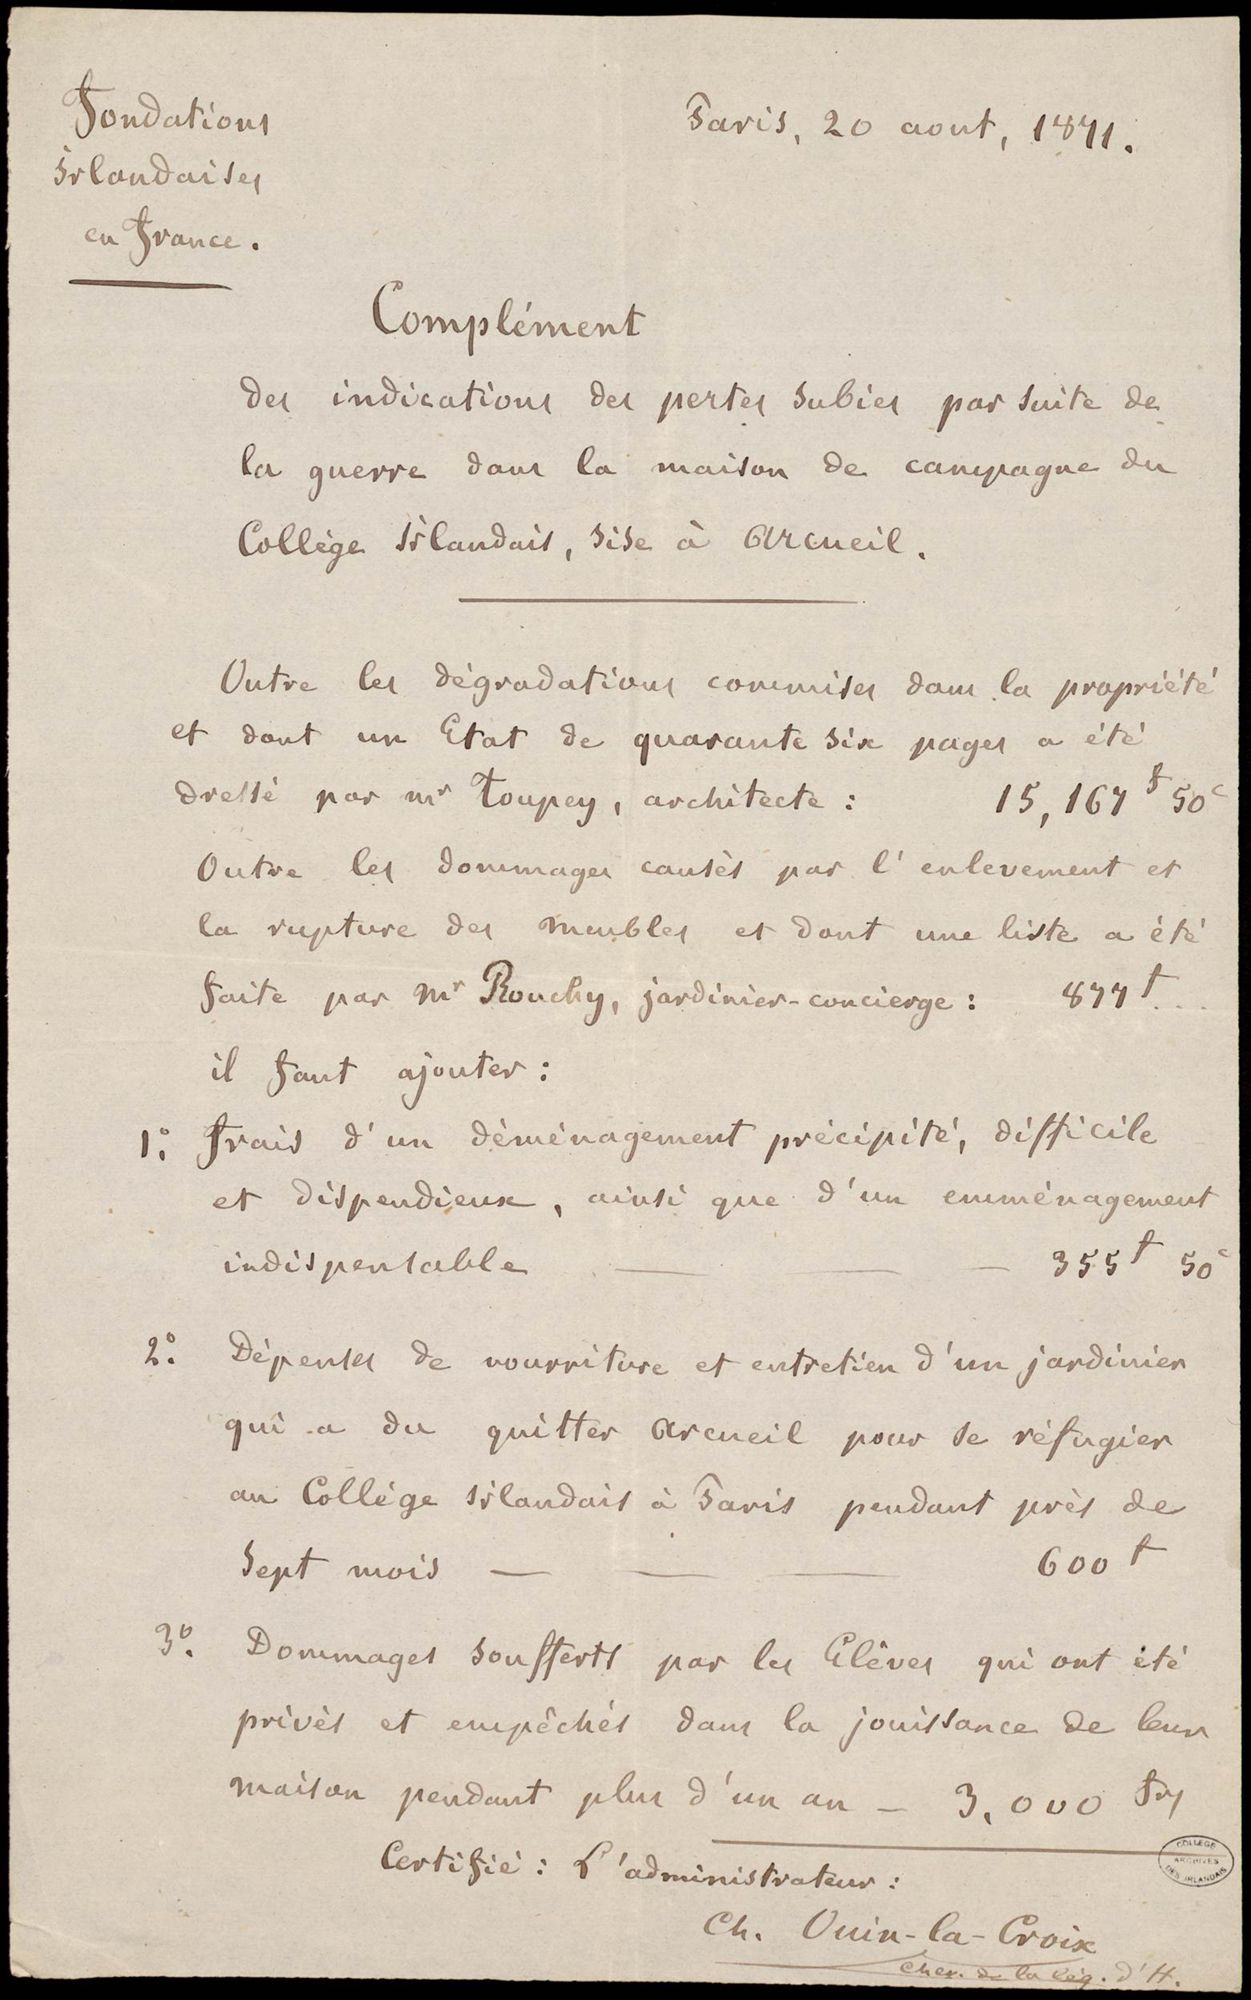 Fondations
irlandaises
en France.
Paris, 20 aout, 1871.
Complément
des indications des pertes subies par suite de
la guerre dans la maison de campagne du
Collège irlandais, sise à Arcueil.
Outre les dégradations commises dans la propriété
et dont un Etat de quarante six pages a été
dressé par mr Toupey, architecte : 15,167 f 50 c
Outre les dommages causés par l'enlevement et
la rupture des meubles et dont une liste a été
faite par mr Rouchy, jardinier-concierge : 877 f ...
il faut ajouter :
1°. Frais d'un déménagement précipité, difficile
et dispendieux, ainsi que d'un emménagement
indispensable — — — 355 f 50 c
2°. Dépenses de nourriture et entretien d'un jardinier
qui a du quitter Arcueil pour se réfugier
au Collége irlandais à Paris pendant près de
sept mois — — — 600 f
3°. Dommages soufferts par les Elèves qui ont été
privés et empêchés dans la jouissance de leur
maison pendant plus d'un an — 3,000 frs
Certifié : L'administrateur :
Ch. Ouin-la-Croix
cher. de la lég. d'H.
COLLEGE
ARCHIVES
DES IRLANDAIS